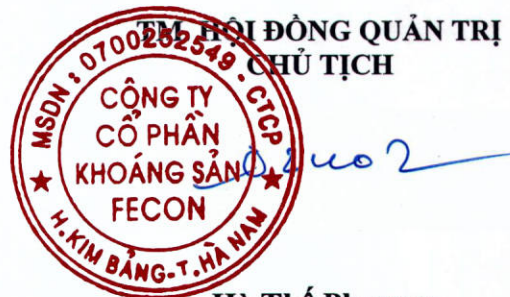 TM. HỘI ĐỒNG QUẢN TRỊ
CHỦ TỊCH
MSDN: 0700252549-CTCP
CÔNG TY
CỔ PHẦN
KHOÁNG SẢN
FECON
H.KIM BẢNG-T.HÀ NAM